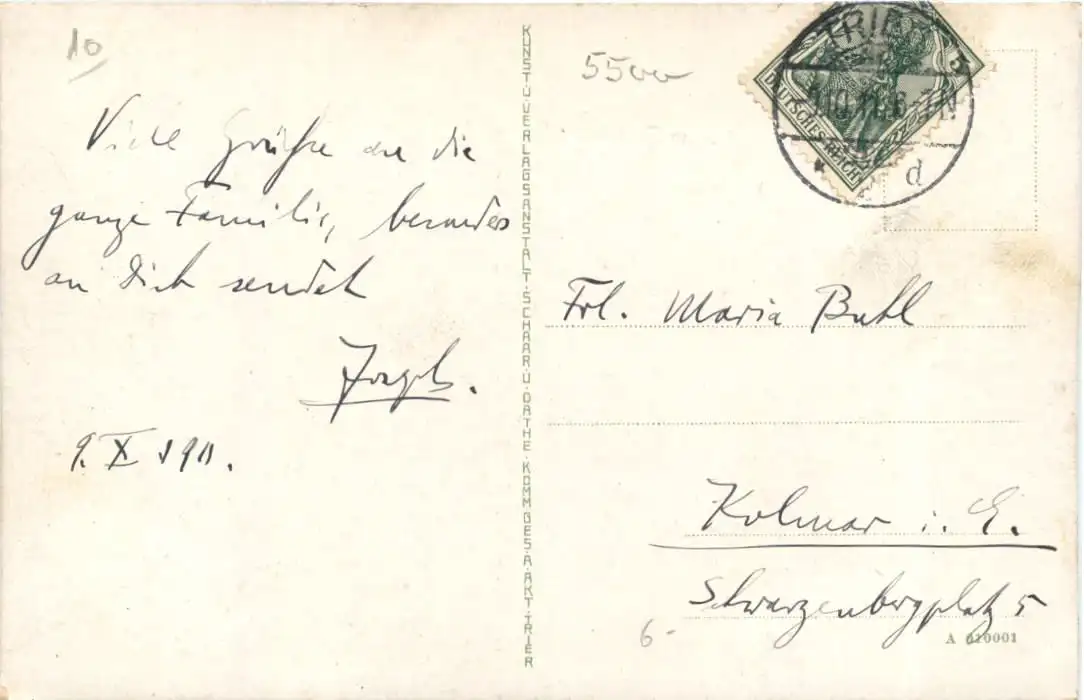 10
Viele Grüße an die
ganze Familie, besonders
an Dich sendet
Joseph.
9. X 1911.
KUNST U. VERLAGSANSTALT SCHAAR U. DATHE KOMM. GES. A. AKT. TRIER
5500
TRIER
DEUTSCHES REICH
5
d
Frl. Maria Buhl
Kolmar i. E.
Schwarzenbergplatz 5
6-
A 010001